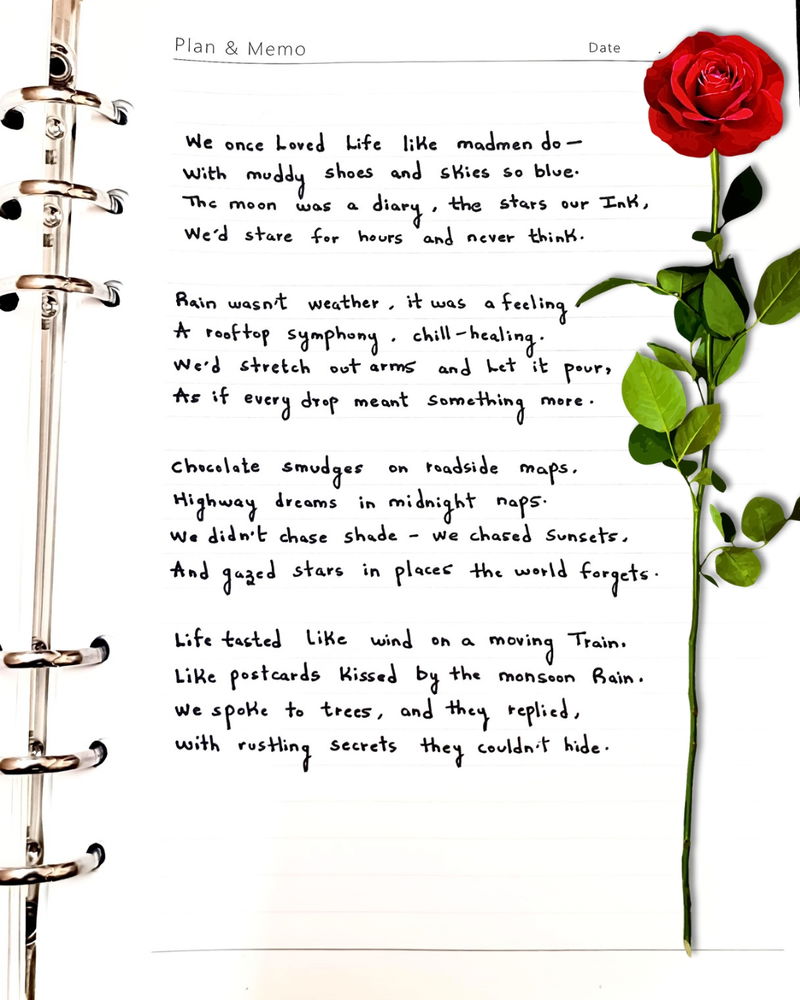 Plan & Memo
Date
We once Loved Life like madmen do —
With muddy shoes and skies so blue.
The moon was a diary, the stars our Ink,
We'd stare for hours and never think.
Rain wasn't weather, it was a feeling
A rooftop symphony, chill-healing.
We'd stretch out arms and Let it pour,
As if every drop meant something more.
Chocolate smudges on roadside maps,
Highway dreams in midnight naps.
We didn't chase shade - we chased Sunsets,
And gazed stars in places the world forgets.
Life tasted Like wind on a moving Train,
Like postcards kissed by the monsoon Rain.
We spoke to trees, and they replied,
with rustling secrets they couldn't hide.